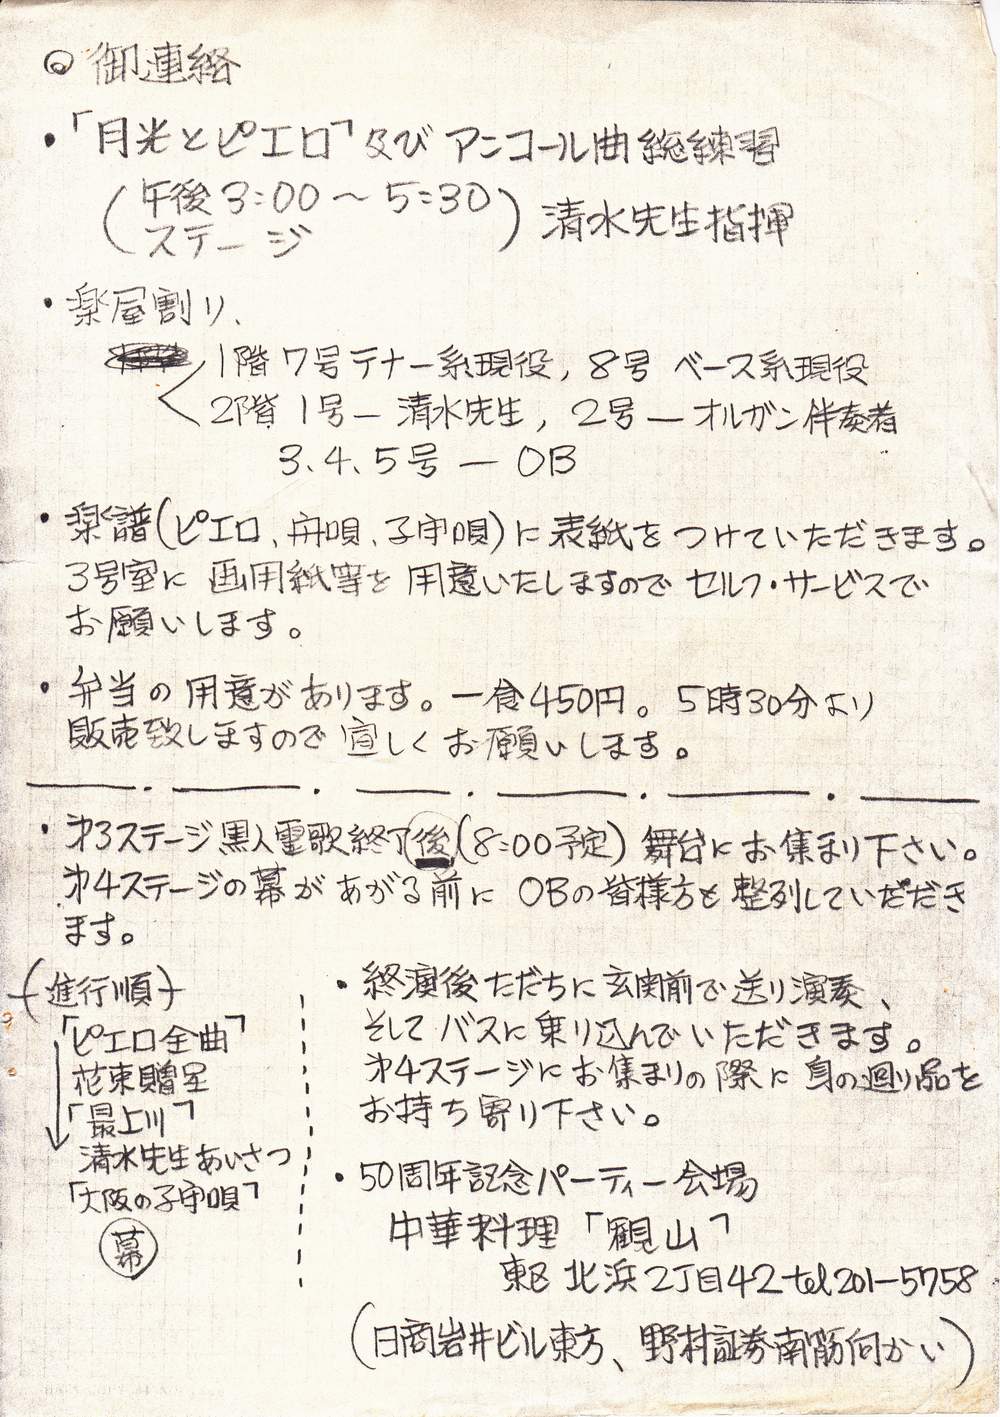 ◎ 御連絡
・「月光とピエロ」及び アンコール曲 総練習
(午後3:00〜5:30
ステージ) 清水先生指揮
・楽屋割り、
1階 7号テナー系現役, 8号 ベース系現役
2階 1号ー清水先生, 2号ーオルガン伴奏者
3、4、5号 ー OB
・楽譜(ピエロ、舟唄、子守唄)に表紙をつけていただきます。
3号室に 画用紙等を 用意いたしますので セルフ・サービスで
お願いします。
・弁当の用意があります。一食450円。5時30分より
販売致しますので 宜しく お願いします。
・才3ステージ黒人霊歌終了後(8:00予定) 舞台にお集まり下さい。
才4ステージの幕が あがる前に OBの皆様方を 整列していただき
ます。
(進行順)
「ピエロ全曲」
花束贈呈
「最上川」
清水先生あいさつ
「大阪の子守唄」
幕
・終演後ただちに玄関前で送り演奏、
そしてバスに乗り込んでいただきます。
才4ステージにお集まりの際に身の廻り品を
お持ち寄り下さい。
・50周年記念パーティー会場
中華料理「観山」
東区 北浜2丁目42 tel 201-5758
(日商岩井ビル東方、野村証券南筋向かい)